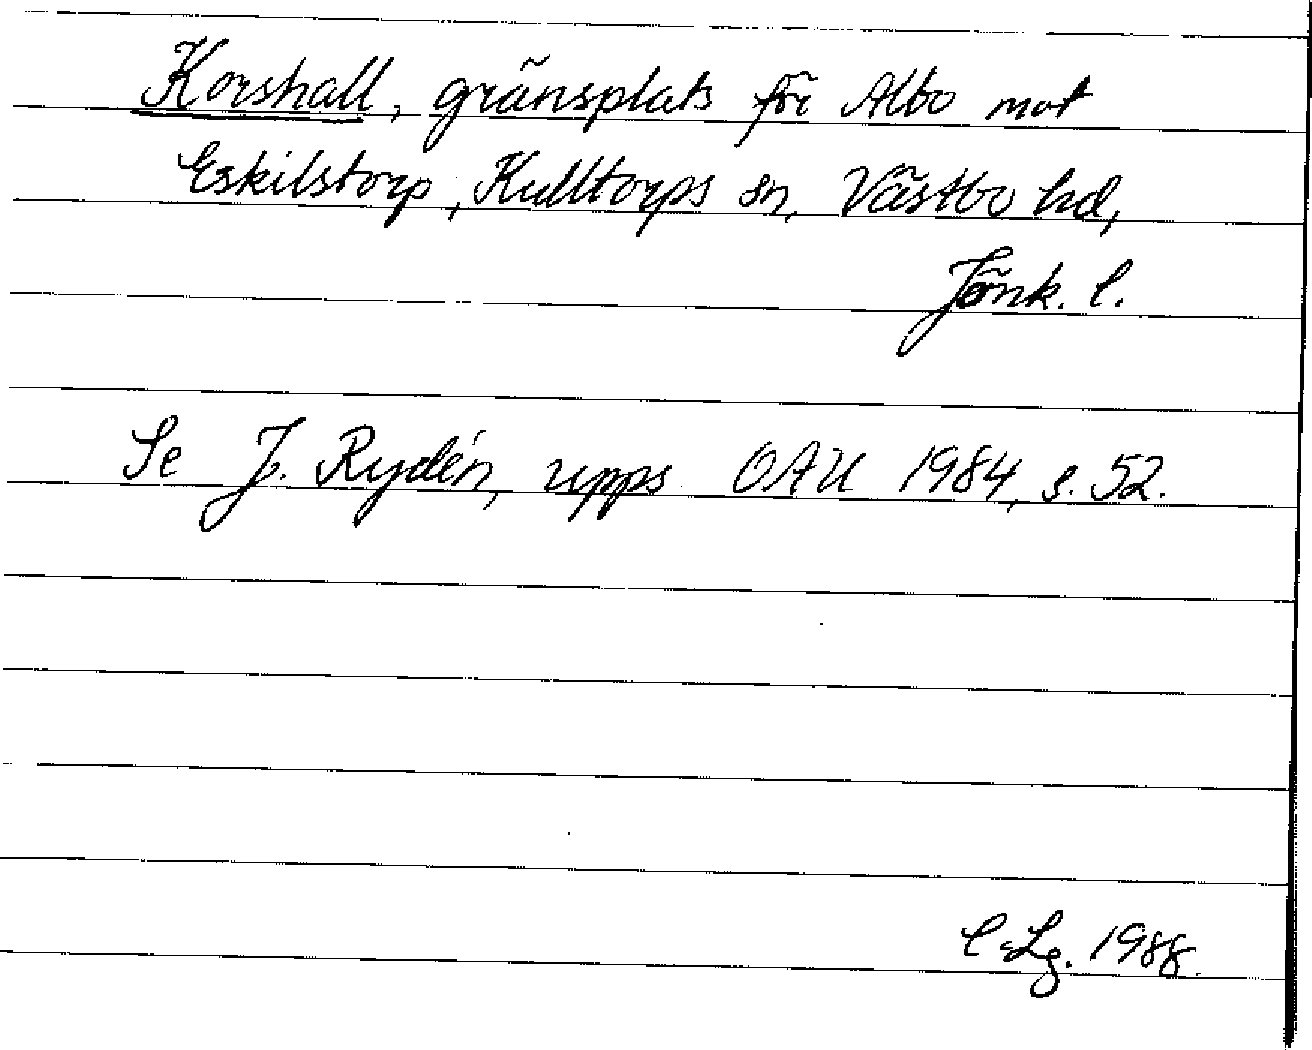 Korshall, gränsplats för Albo mot
Eskilstorp, Kulltorps sn, Västbo hd,
Jönk. l.
Se J. Rydén, upps OAU 1984, s. 52.
1988.